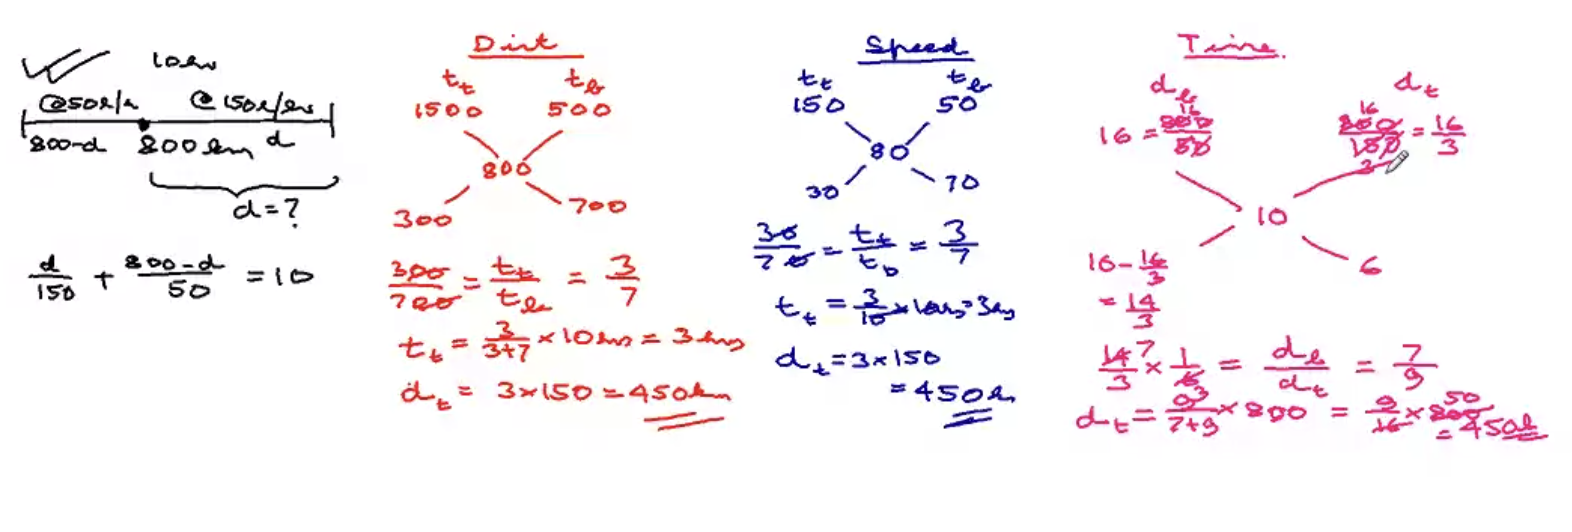 10hrs
@50k/h @150k/hr
800-d 800km d
d=?
d/150 + 800-d/50 = 10
Dist
t_t t_b
1500 500
800
300 700
300/700 = t_t/t_b = 3/7
t_t = 3/3+7 × 10hrs = 3hrs
d_t = 3×150 = 450km
Speed
t_t t_b
150 50
80
30 70
30/70 = t_t/t_b = 3/7
t_t = 3/10 × 10hrs = 3hrs
d_t = 3×150
= 450k
Time
d_b d_t
16 = 800/50 16 800/150 16 3 = 16/3
10
10 - 16/3 6
= 14/3
14/3 7 × 1/6 = d_b/d_t = 7/9
d_t = 9/7+9 × 800 = 9/16 × 800 50
= 450k